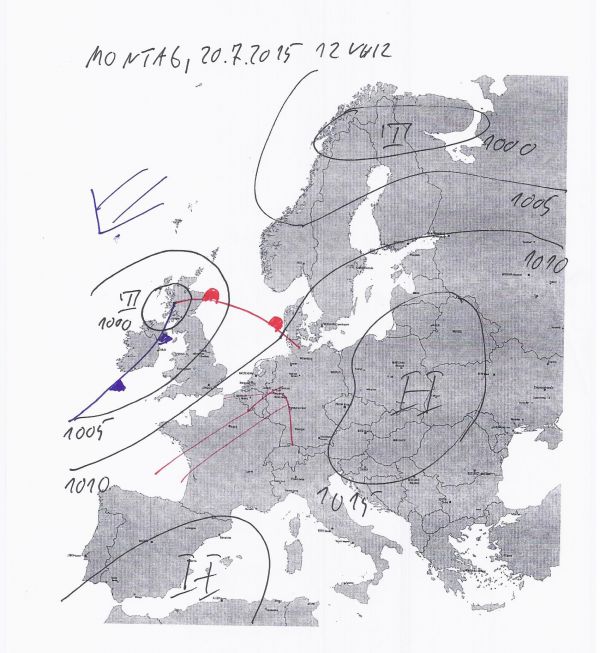 MONTAG, 20.7.2015 12 UHR
T
1000
1005
1010
T
1000
1005
1010
H
1015
H